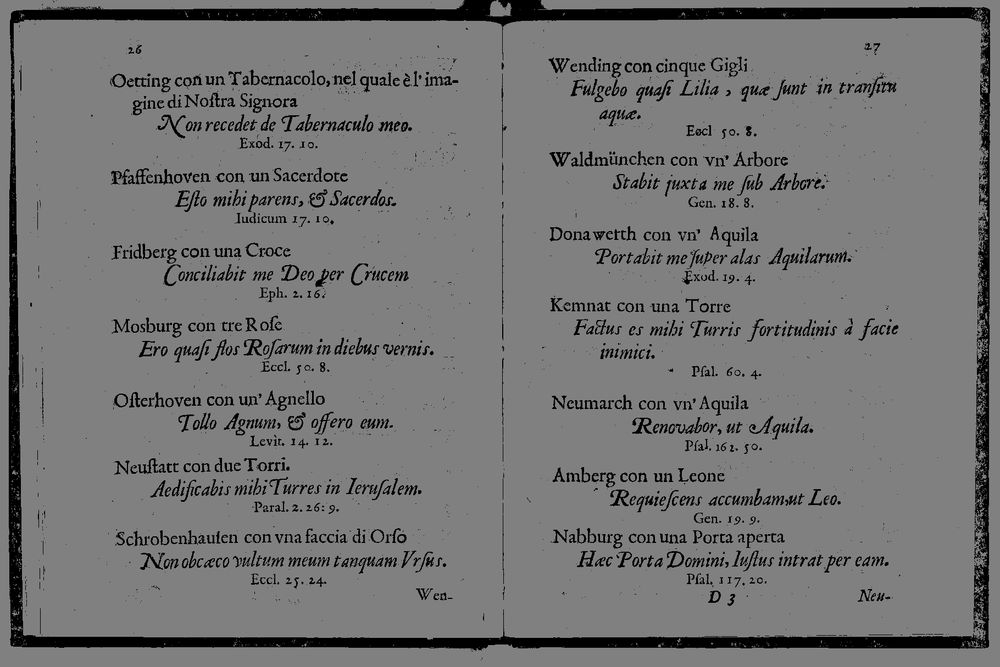 26
Oetting con un Tabernacolo, nel quale è l' ima-
gine di Noſtra Signora
Non recedet de Tabernaculo meo.
Exod. 17. 10.
Pfaffenhoven con un Sacerdote
Eſto mihi parens, & Sacerdos.
Iudicum 17. 10.
Fridberg con una Croce
Conciliabit me Deo per Crucem
Eph. 2. 16.
Mosburg con tre Roſe
Ero quaſi flos Roſarum in diebus vernis.
Eccl. 50. 8.
Oſterhoven con un' Agnello
Tollo Agnum, & offero eum.
Levit. 14. 12.
Neuſtatt con due Torri.
Aedificabis mihi Turres in Ieruſalem.
Paral. 2. 26: 9.
Schrobenhauſen con vna faccia di Orſo
Non obcæco vultum meum tanquam Vrſus.
Eccl. 25. 24.
Wen-
27
Wending con cinque Gigli
Fulgebo quaſi Lilia, quæ ſunt in tranſitu
aquæ.
Eccl 50. 8.
Waldmünchen con vn' Arbore
Stabit juxta me ſub Arbore.
Gen. 18. 8.
Donawerth con vn' Aquila
Portabit me ſuper alas Aquilarum.
Exod. 19. 4.
Kemnat con una Torre
Factus es mihi Turris fortitudinis à facie
inimici.
Pſal. 60. 4.
Neumarch con vn' Aquila
Renovabor, ut Aquila.
Pſal. 162. 50.
Amberg con un Leone
Requieſcens accumbam ut Leo.
Gen. 19. 9.
Nabburg con una Porta aperta
Hæc Porta Domini, Iuſtus intrat per eam.
Pſal. 117. 20.
D 3
Neu-